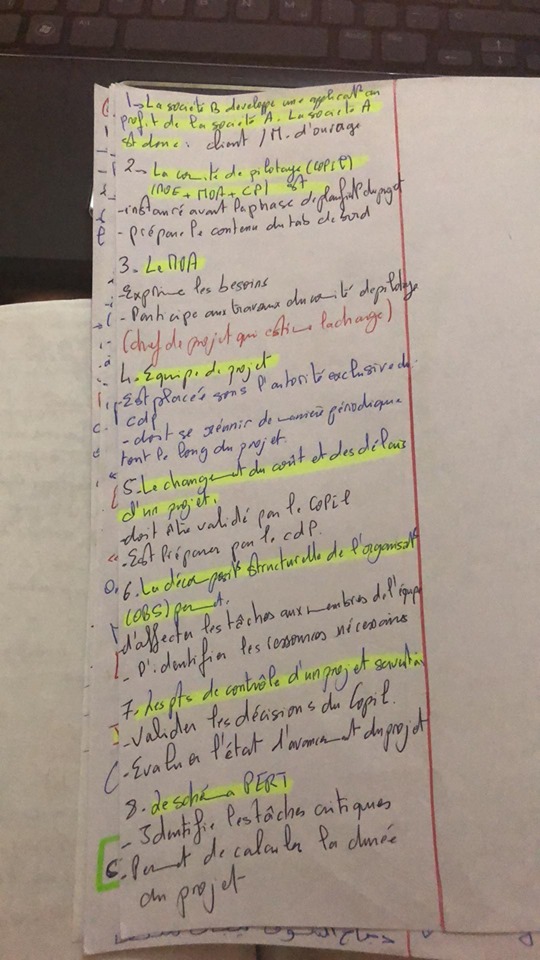 1- La société B développe une application au
profit de la société A. La société A
est donc : client / M. d'ouvrage
2- Le comité de pilotage (COPIL)
(MOE + MOA + CP) est
- instancié avant la phase de planificat° du projet
- prépare le contenu du tab de bord
3. Le MOA
- Exprime les besoins
- Participe aux travaux du comité de pilotage
(chef de projet qui estime la charge)
4. Equipe de projet
- Est placée sous l'autorité exclusive du
cdp
- doit se réunir de manière périodique
tout le long du projet.
5- Le changement du coût et des délais
d'un projet.
- doit être validé par le Copil
- Est Préparer par le cdP.
6. La décomposit° structurelle de l'organisat°
(OBS) permet.
d'affecter les tâches aux membres de l'équipe
- D'identifier les ressources nécessaires
7. Les pts de contrôle d'un projet servent à
- Valider les décisions du Copil.
- Evaluer l'état d'avancement du projet
8. Le schéma PERT
- Identifie les tâches critiques
- Permet de calculer la durée
du projet